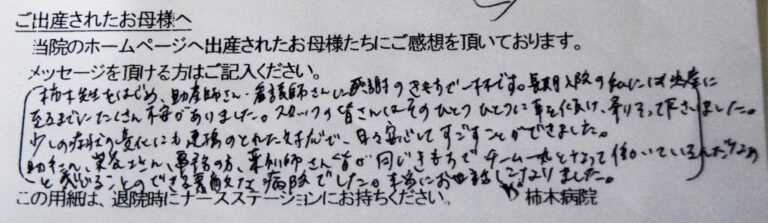 ご出産されたお母様へ
当院のホームページへ出産されたお母様たちにご感想を頂いております。
メッセージを頂ける方はご記入ください。
柿木先生をはじめ、助産師さん・看護師さんに感謝の気もちで一杯です。長期入院の私には出産に
至るまでにたくさん不安がありました。スタッフの皆さんはそのひとつひとつに耳を傾け、寄りそって下さいました。
少しの症状の変化にも連携のとれた対応で、日々安心してすごすことができました。
助手さん、栄養士さん、事務の方、薬剤師さん皆が同じ気もちでチーム一丸となって働いているんだなぁ
と感じることのできる素敵な病院でした。本当にお世話になりました。
この用紙は、退院時にナースステーションにお持ちください。 柿木病院